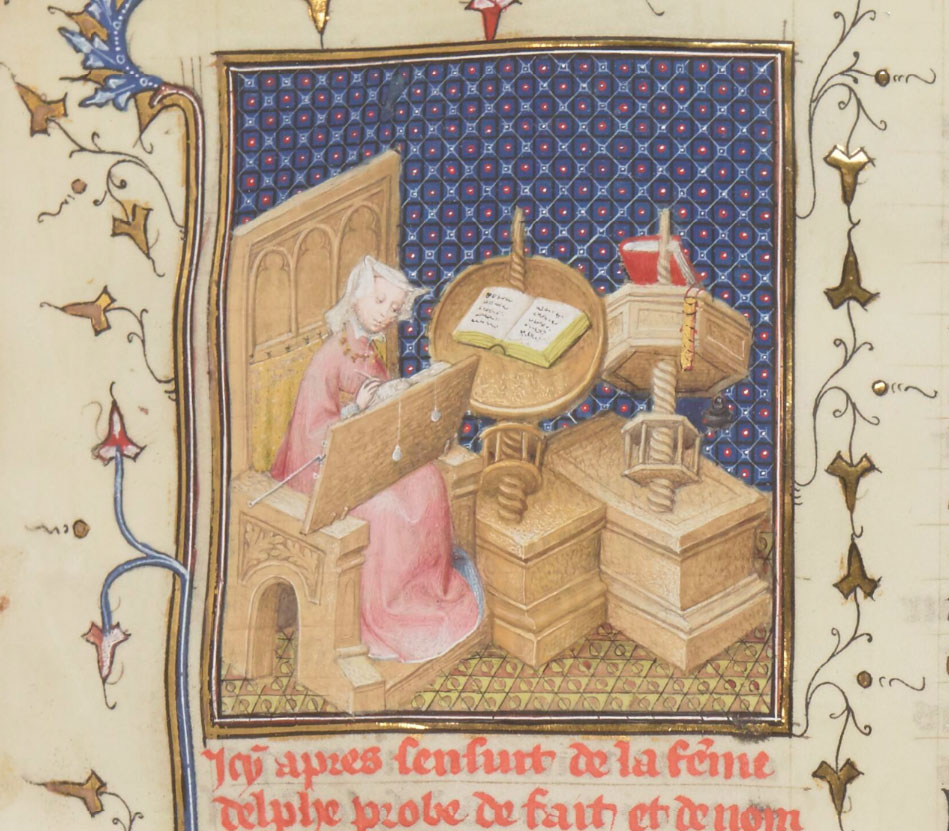 Icy apres sensuit de la fe͂me
delphe probe de fait et de nom